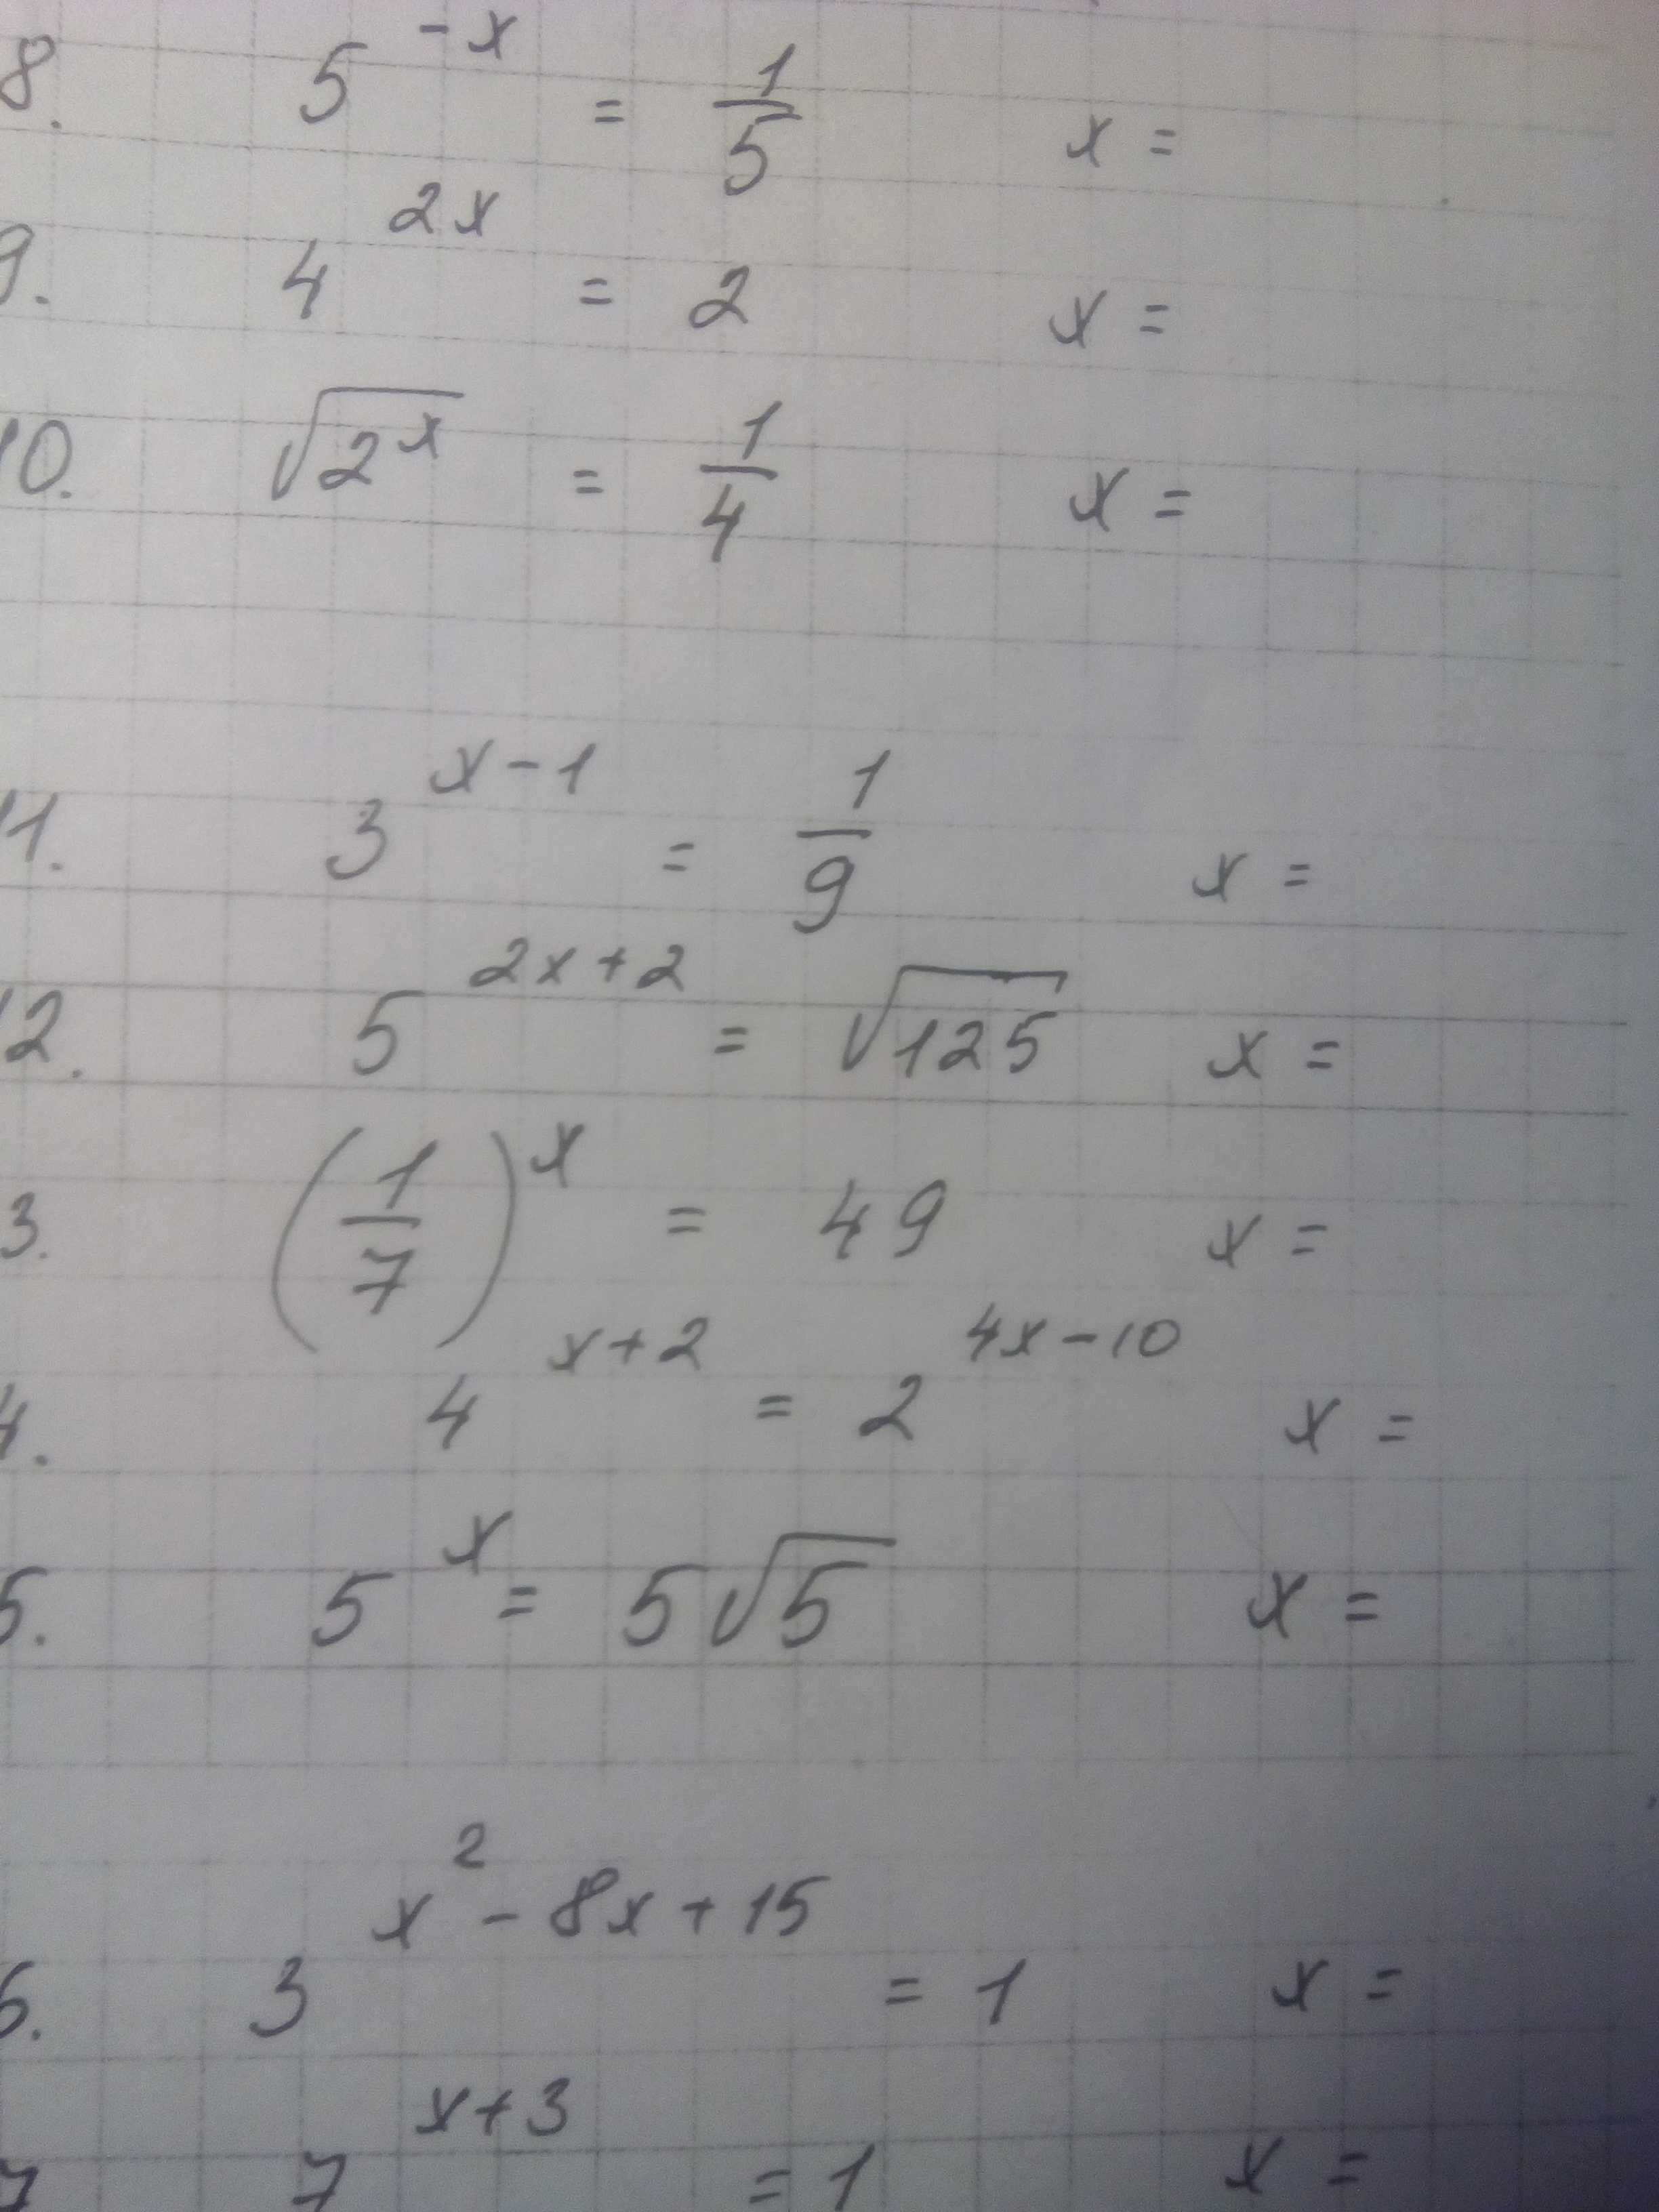 8. 5^{-x} = 1/5 x =
9. 4^{2x} = 2 x =
10. √(2^x) = 1/4 x =
11. 3^{x-1} = 1/9 x =
12. 5^{2x+2} = √125 x =
3. (1/7)^x = 49 x =
4. 4^{x+2} = 2^{4x-10} x =
5. 5^x = 5√5 x =
6. 3^{x^2-8x+15} = 1 x =
7 7^{x+3} = 1 x =